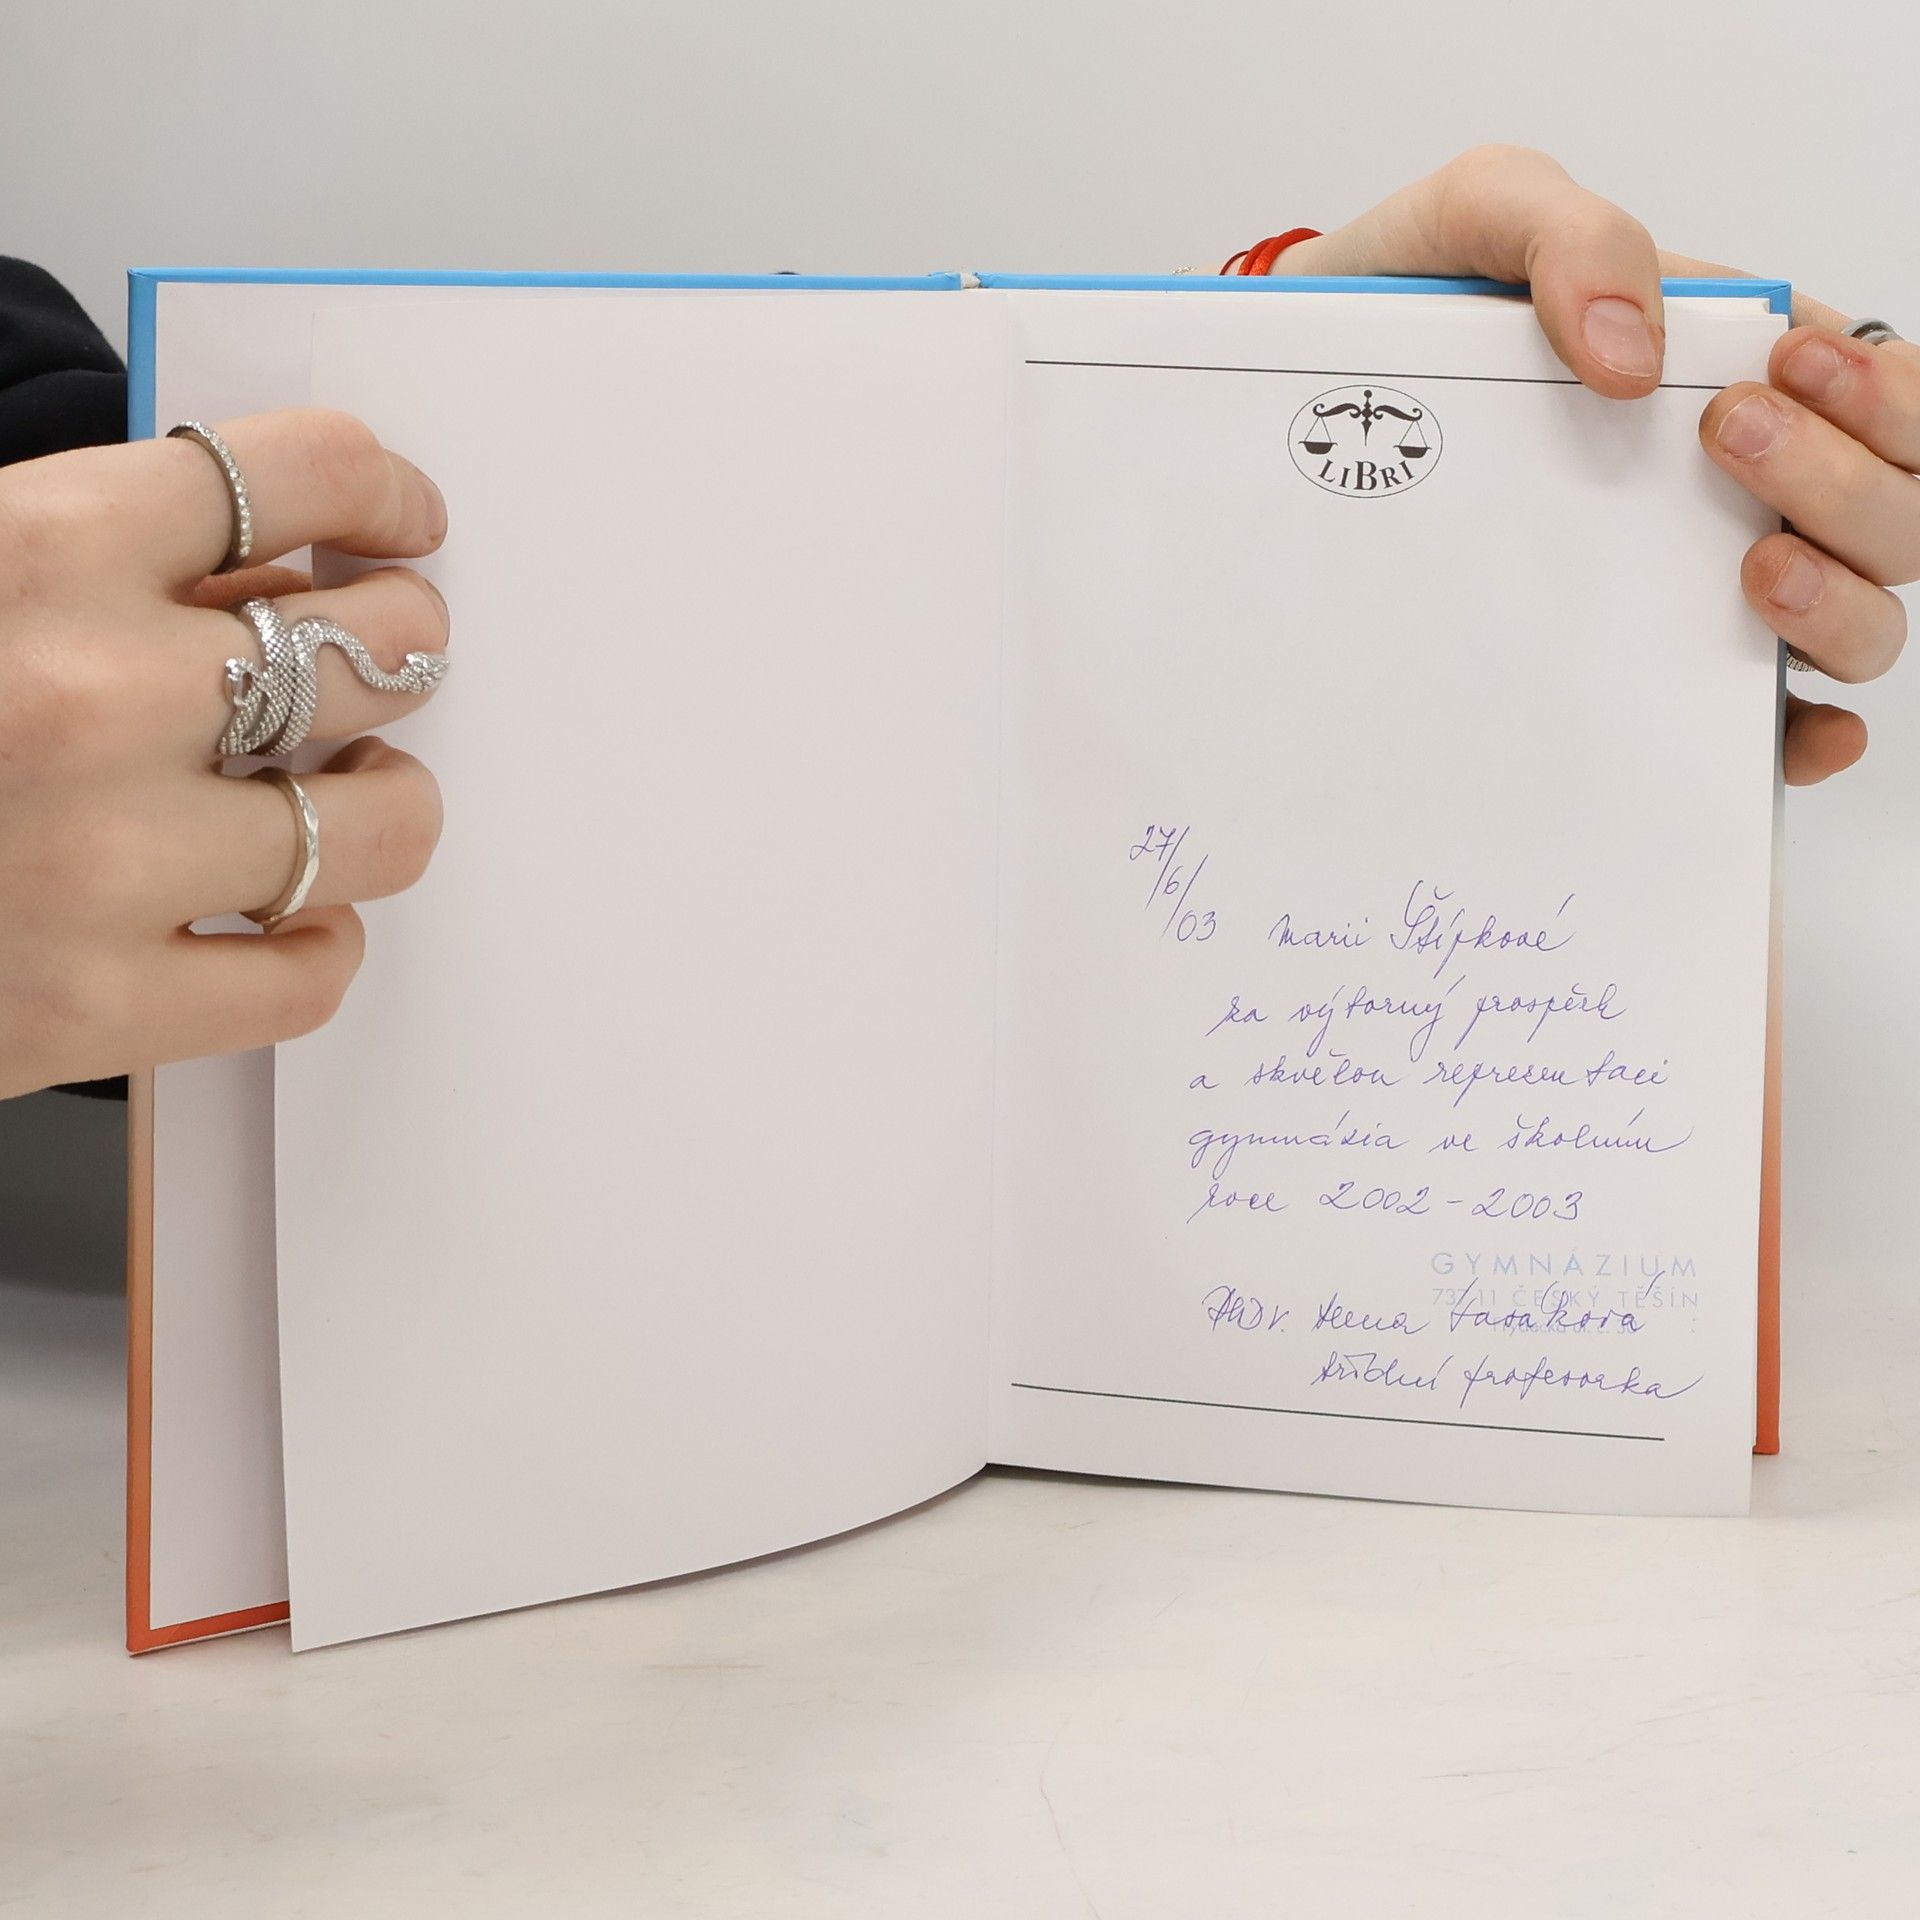 LIBRI
27/
/6/
/03 Marii Štípkové
za výborný prospěch
a skvělou representaci
gymnázia ve školním
roce 2002-2003
GYMNÁZIUM
737 11 ČESKÝ TĚŠÍN
PhDr. Anna
třídní profesorka